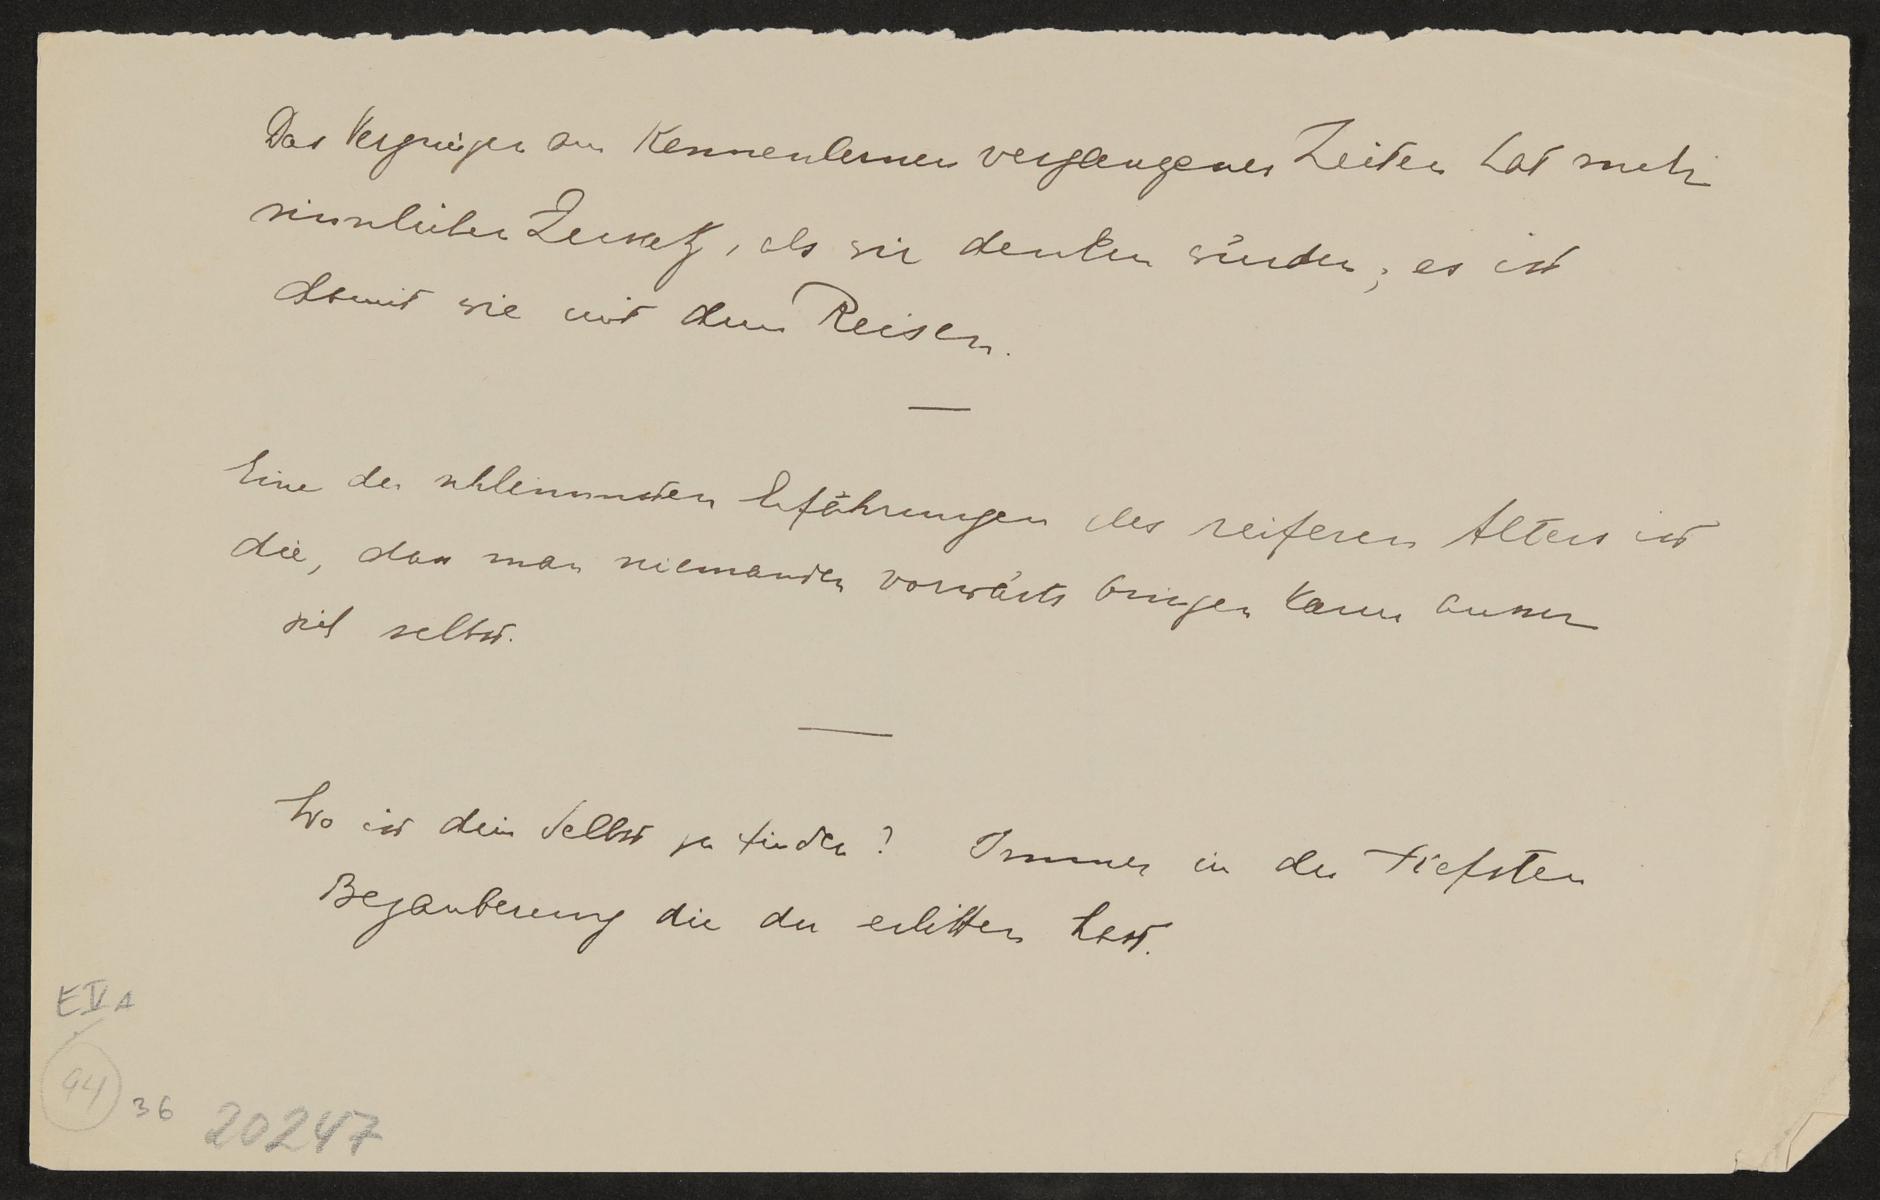 Das Vergnügen am Kennenlernen vergangener Zeiten hat mehr
sinnlichen Zusatz, als wir denken würden; es ist
damit wie mit dem Reisen.
—
Eine der schlimmsten Erfahrungen des reiferen Alters ist
die, dass man niemanden vorwärts bringen kann ausser
sich selbst.
—
Wo ist dein Selbst zu finden? Immer in der tiefsten
Bezauberung die du erlitten hast.
E V A
94
36
20247